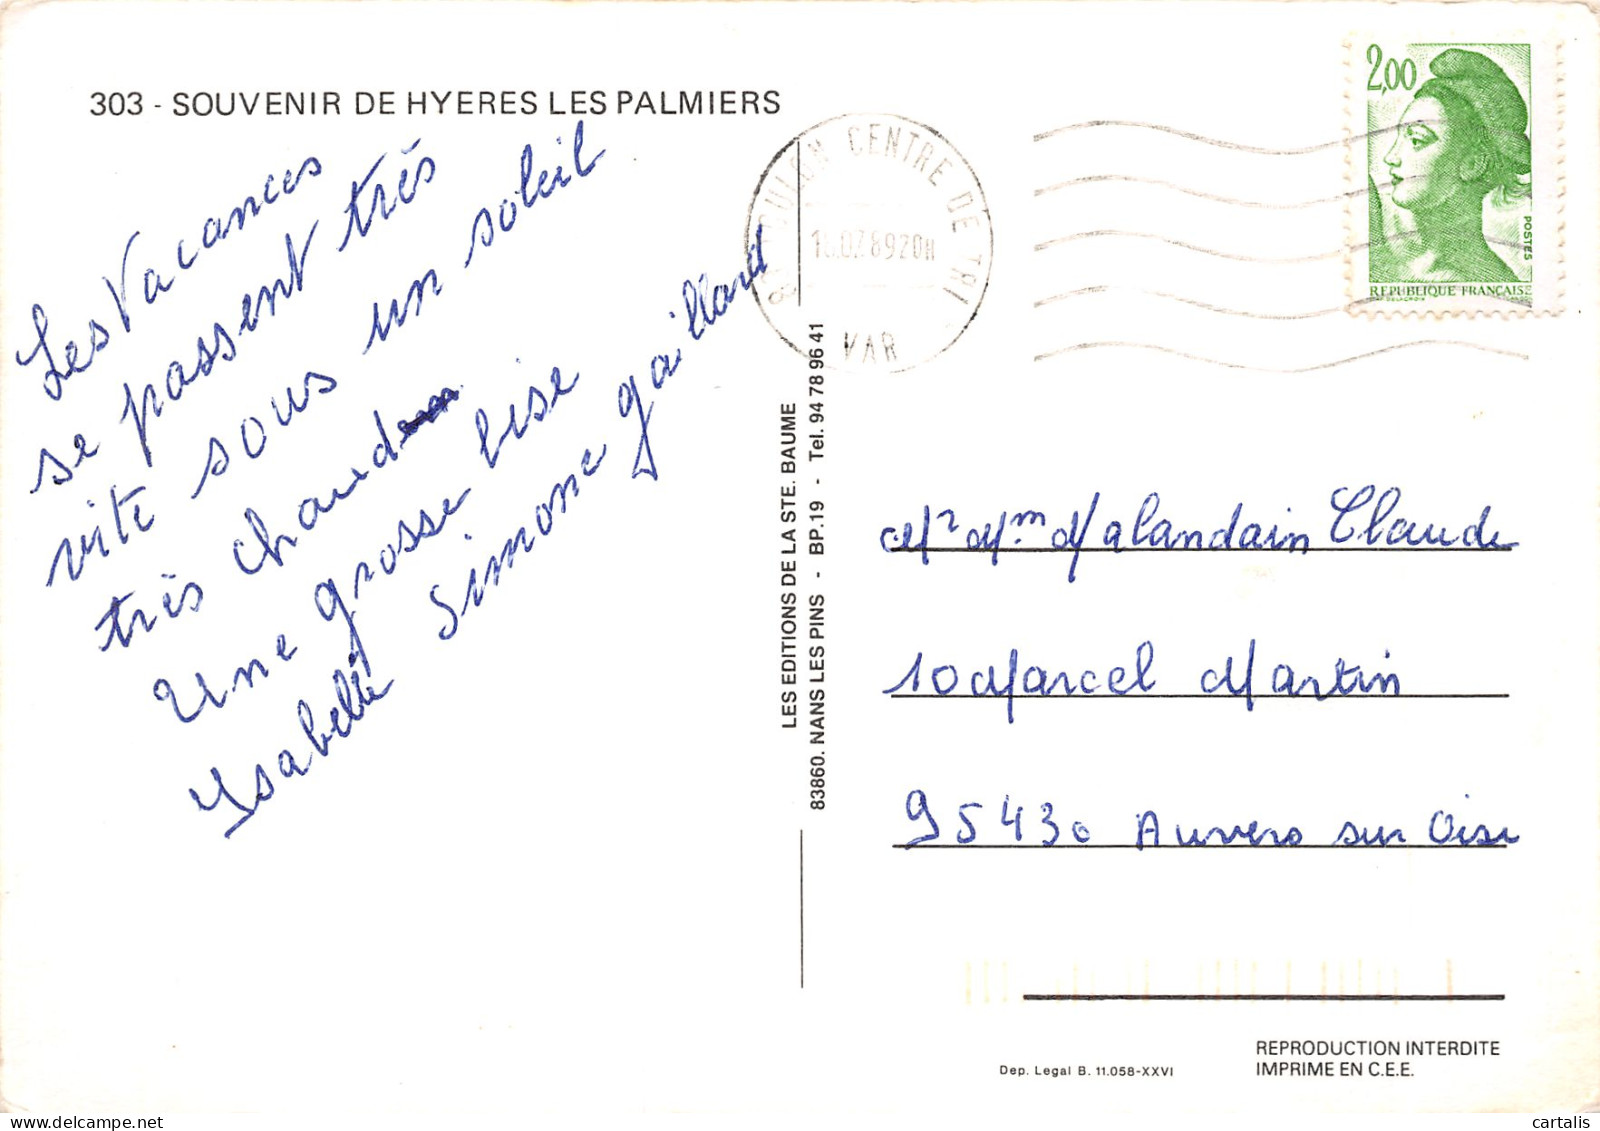 303 - SOUVENIR DE HYERES LES PALMIERS
Les Vacances
se passent très
vite sous un soleil
très chaud
Une grosse bise
Isabelle Simone gaillard
LES EDITIONS DE LA STE. BAUME
83860. NANS LES PINS - BP.19 - Tel. 94 78 96 41
TOULON CENTRE DE TRI
89 20H
VAR
2,00
POSTES
REPUBLIQUE FRANÇAISE
Mr Mm Malandain Claude
10 Marcel Martin
95430 Auvers sur Oise
REPRODUCTION INTERDITE
Dep. Legal B. 11.058-XXVI
IMPRIME EN C.E.E.
cartalis